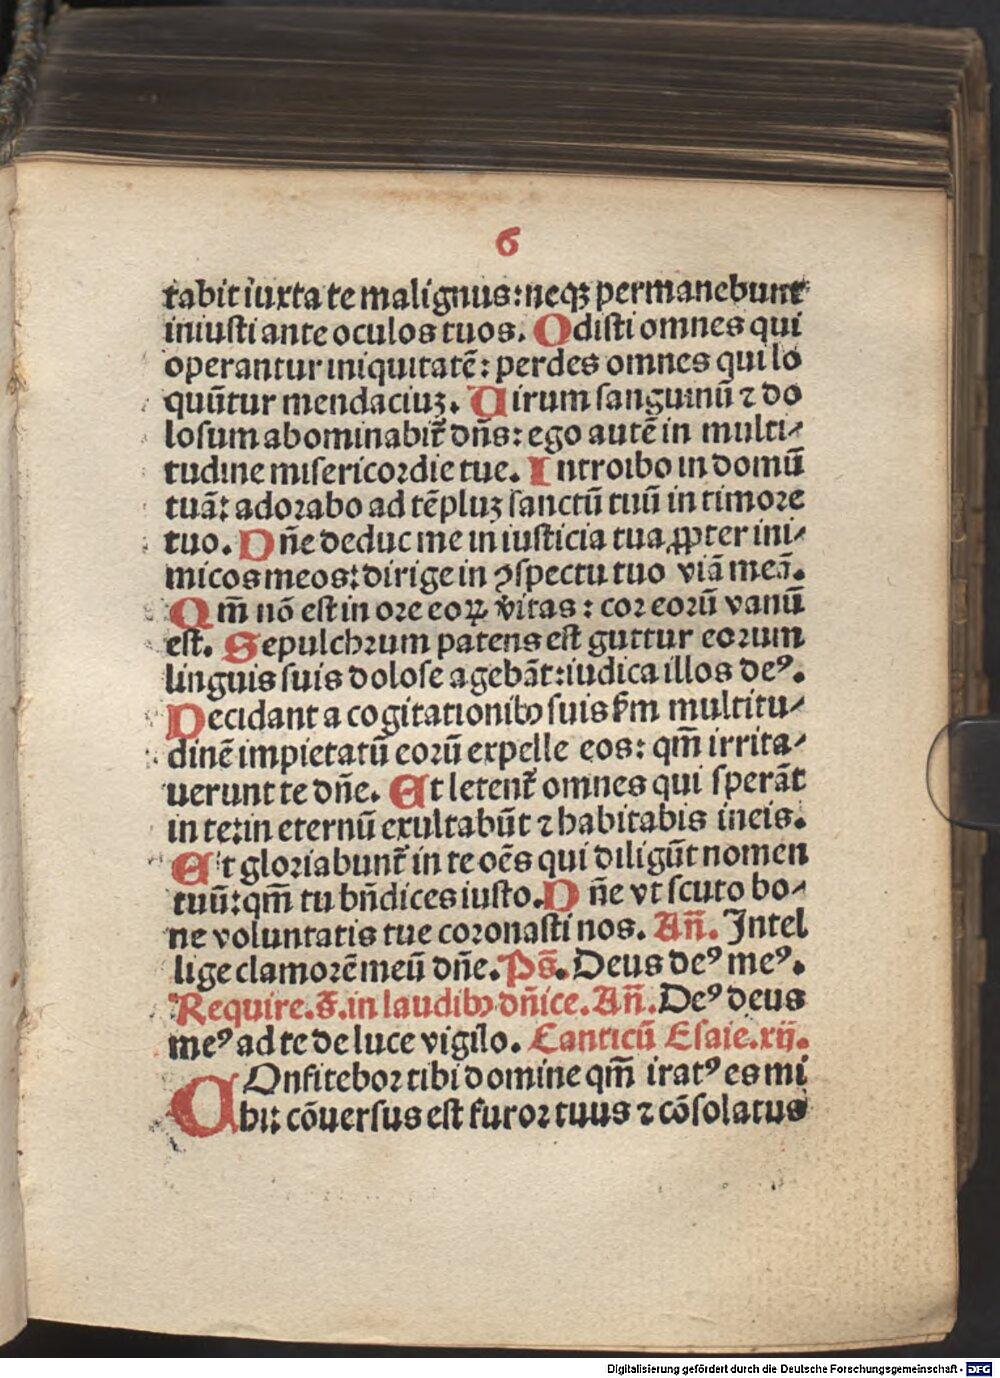 6
tabit iuxta te malignus: neqꝫ permanebunt
iniusti ante oculos tuos. Odisti omnes qui
operantur iniquitatē: perdes omnes qui lo
quūtur mendaciuꝫ. Uirum sanguinū ⁊ do
losum abominabit᷑ dn̄s: ego autē in multi⸗
tudine misericordie tue. Introibo in domū
tuā: adorabo ad tēpluꝫ sanctū tuū in timore
tuo. Dn̄e deduc me in iusticia tua ꝓpter ini⸗
micos meos: dirige in ꝯspectu tuo viā meā.
Qm̄ nō est in ore eoꝝ v̓itas: cor eorū vanū
est. Sepulchrum patens est guttur eorum
linguis suis dolose agebāt: iudica illos deꝰ.
Decidant a cogitationibꝫ suis ẜm multitu⸗
dinē impietatū eorū expelle eos: qm̄ irrita⸗
uerunt te dn̄e. Et letent᷑ omnes qui sperāt
in te: in eternū exultabūt ⁊ habitabis in eis.
Et gloriabunt᷑ in te oēs qui diligūt nomen
tuū: qm̄ tu bn̄dices iusto. Dn̄e vt scuto bo⸗
ne voluntatis tue coronasti nos. An̄. Intel
lige clamorē meū dn̄e. Ps̄. Deus deꝰ meꝰ.
Require. s̄. in laudibꝫ dn̄ice. An̄. Deꝰ deus
meꝰ ad te de luce vigilo. Canticū Esaie. xij.
COnfitebor tibi domine qm̄ iratꝰ es mi
hi: cōuersus est furor tuus ⁊ cōsolatus
Digitalisierung gefördert durch die Deutsche Forschungsgemeinschaft - DFG